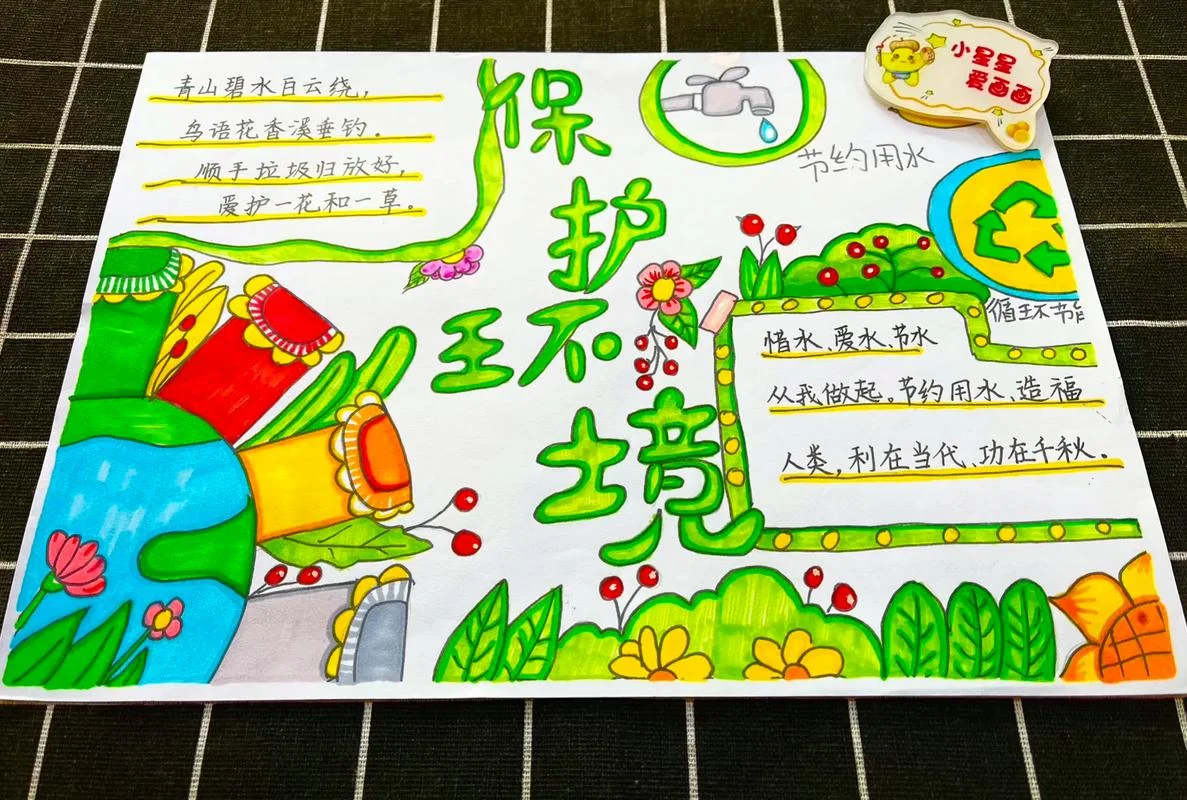 青山碧水白云绕，
鸟语花香溪垂钓。
顺手垃圾归放好，
爱护一花和一草。
保
护
环
境
节约用水
小星星
爱画画
循环节
惜水、爱水、节水
从我做起。节约用水、造福
人类，利在当代、功在千秋。